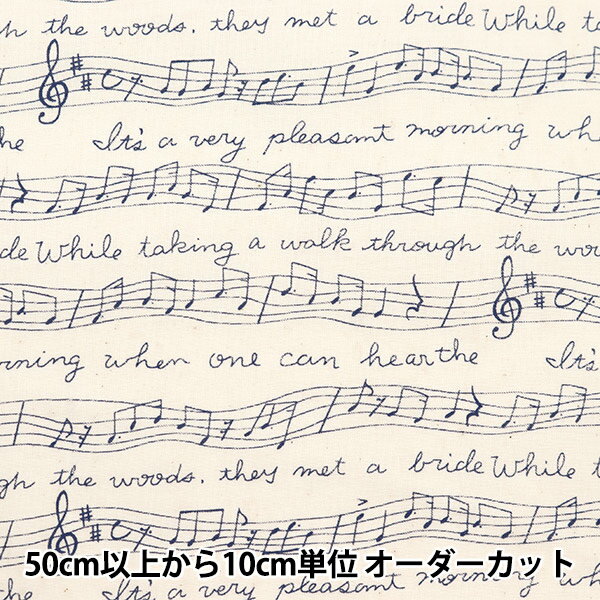 gh the woods. they met a bride While ta
he It's a very pleasant morning whe
de While taking a walk through the woo
rning when one can hear the It's
gh the woods. they met a bride While t
he It's a very pleasant morning wh
50cm以上から10cm単位 オーダーカット